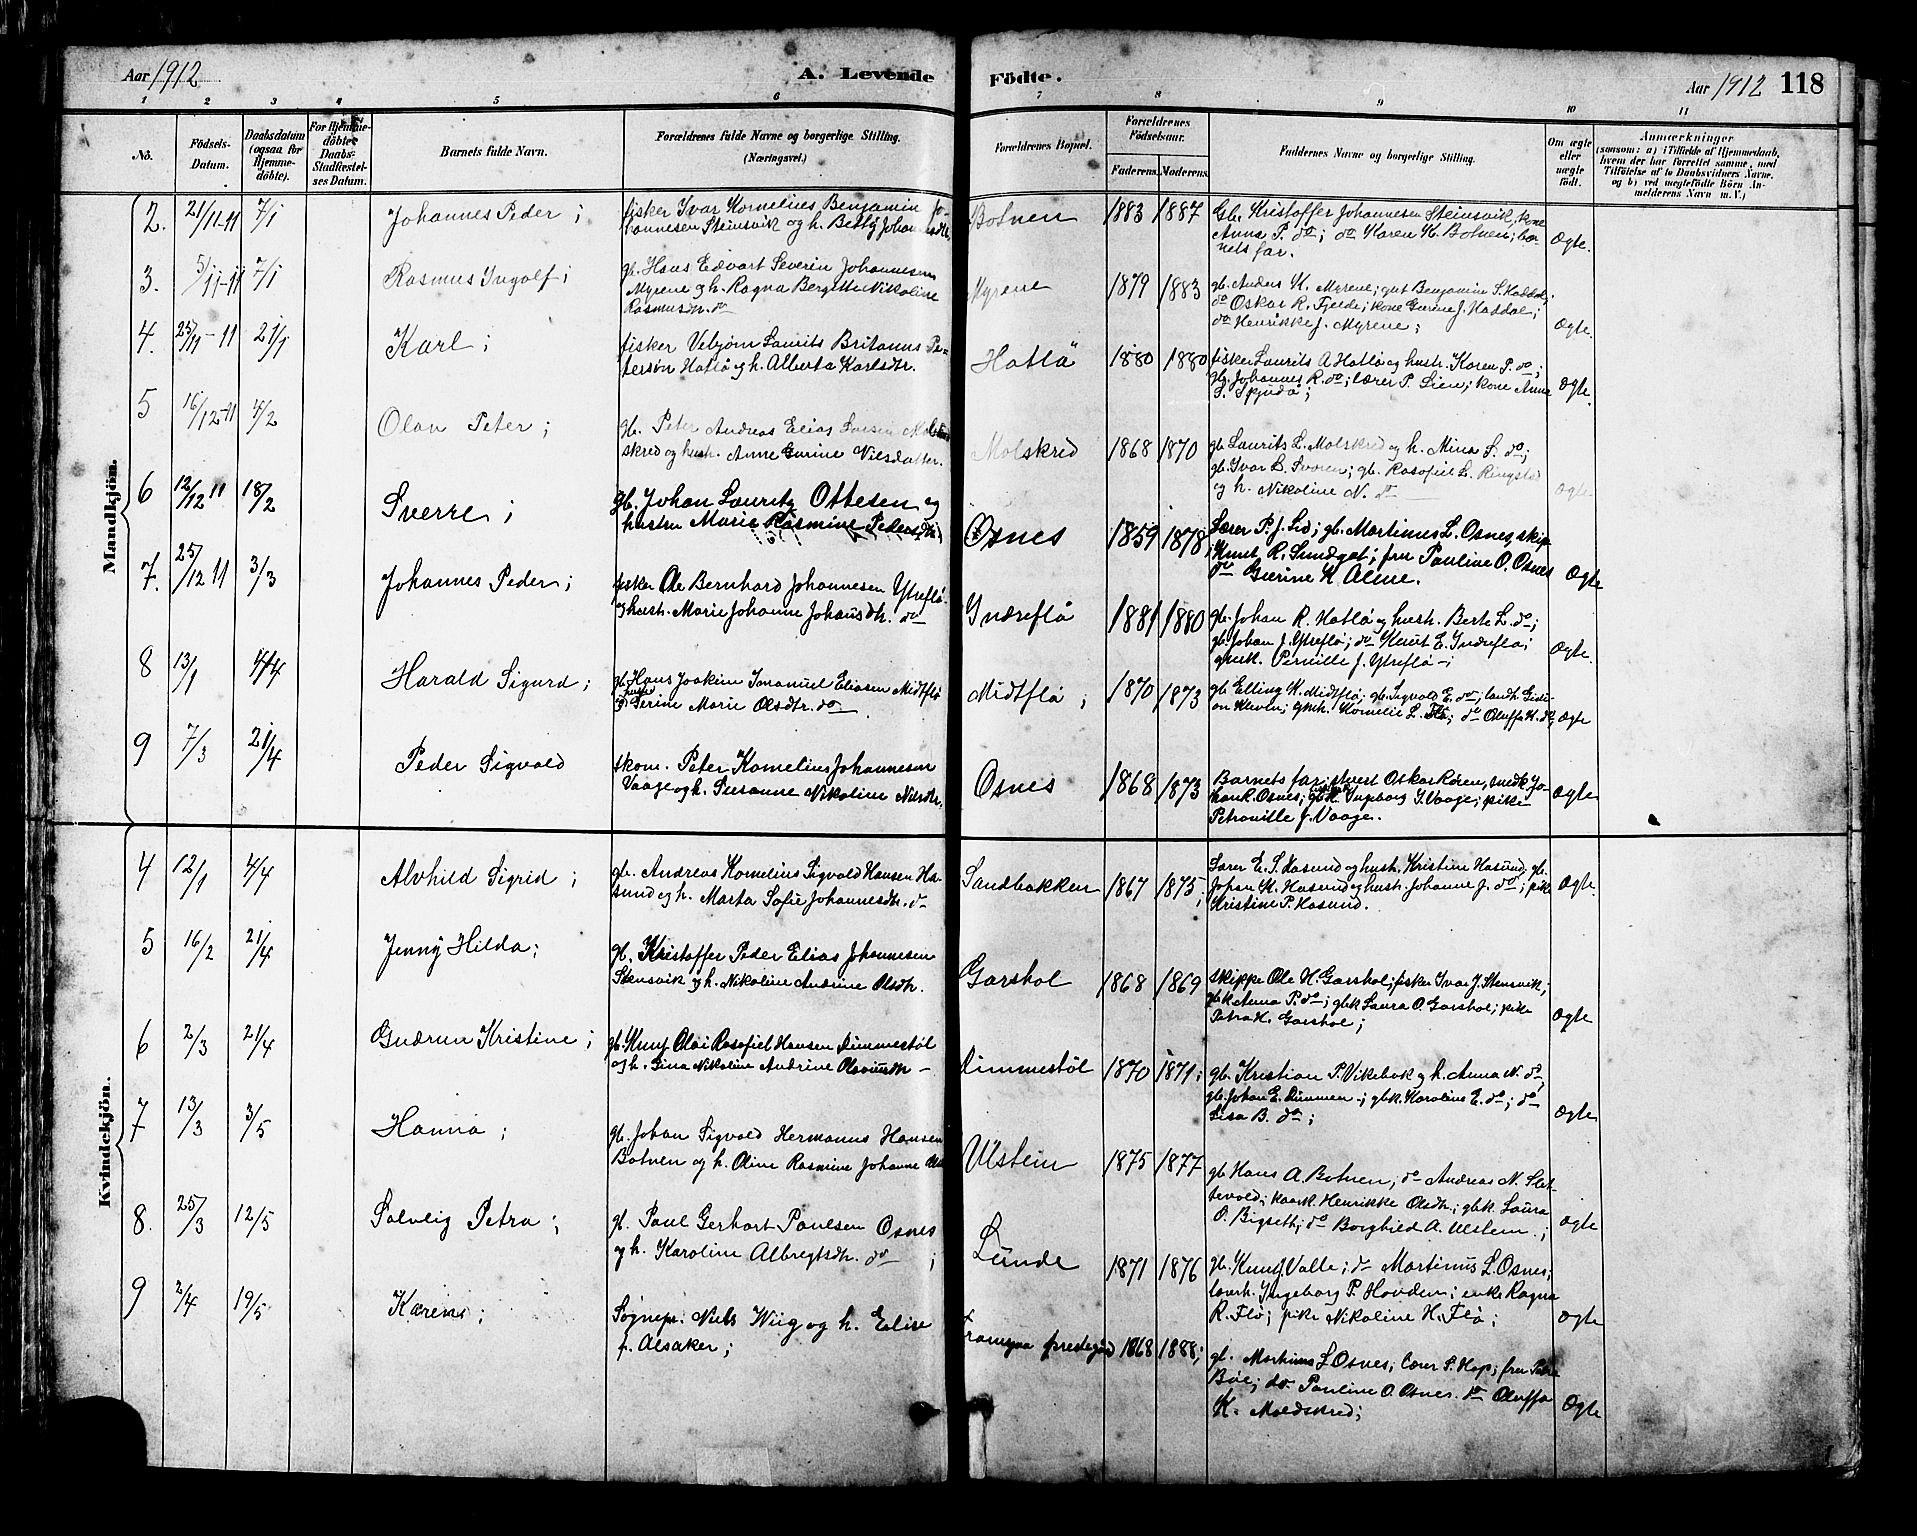 Aar 1912
A. Levende Födte.
Aar 1912 118
1 2 3 4 5 6 7 8 9 10 11
No.
Födsels-Datum.
Daabsdatum (ogsaa for Hjemme-döbte).
For Hjemme-döbte: Daabs-Stadfæstelses Datum.
Barnets fulde Navn.
Forældrenes fulde Navne og borgerlige Stilling.
(Næringsvei.)
Forældrenes Bopæl.
Forældrenes Födselsaar.
Faderens. Moderens.
Faddernes Navne og borgerlige Stilling.
Om ægte eller uægte födt.
Anmærkninger
(saasom: a) i Tilfælde af Hjemmedaab,
hvem der har forrettet samme, med
Tilföielse af to Daabsvidners Navne,
og b) ved uægtefödte Börn An-
melderens Navn m. V.)
Mandkjön.
2. 21/11-11 7/1 Johannes Peder; fisker Ivar Kornelius Benjamin Jo-
hannesen Steinsvik og h. Betty Johannesdtr.
Botnen 1883 1887 Gb. Kristoffer Johannesen Steinsvik, kone
Anna P. do; do Karen K. Botnen; bar-
nets far. Ægte.
3. 5/11-11 7/1 Rasmus Ingolf; gb. Hans Edvart Severin Johannesen
Myrene og h. Ragna Bergitte Nikoline
Rasmusdtr. do
Myrene 1879 1883 gb. Anders K. Myrene; gut Benjamin S. Haddal;
do Oskar R. Fjelde; kone Gurine J. Haddal;
do Henrikke J. Myrene; Ægte.
4. 25/11-11 21/1 Karl; fisker Vebjørn Laurits Britanus Pe-
tersøn Hatlø og h. Alberta Karlsdtr.
Hatlø 1880 1880 fisker Laurits A Hatlø og hustr. Karen P. do;
gb. Johannes R. do; lærer P. Lien; kone Anna
Ægte.
5 16/12-11 4/2 Olav Peter; gb. Peter Andreas Elias Larsen Mol-
skred og hustr. Anne Gurine Nilsdatter.
Molskred 1868 1870 gb Laurits L. Molskred og h. Mina S. do;
gb. Ivar L. Svoren; gb. Rasofiel L. Ringstad
og h. Nikoline N. do Ægte
6 12/12 11 18/2 Sverre; gb. Johan Lauritz Ottesen og
hustru Marie Rasmine Pedersdtr.
Osnes 1859 1878 Lærer P. J. Lid; gb. Martinus L. Osnes, skip.
Knut R. Sundgot; fru Pauline O. Osnes
do Gurine K. Alme. Ægte
7. 25/12 11 3/3 Johannes Peder; fisker Ole Bernhard Johannesen Ytreflø
og hustr. Marie Johanne Johansdtr. do
Indreflø 1881 1880 gb. Johan R. Hatlø og hustr. Berte L. do;
gb. Johan J. Ytreflø; do Knut E. Indreflø;
Pernille J. Ytreflø; Ægte.
8 13/1 4/4 Harald Sigurd; gb. Hans Joakim Imanuel Eliasen Midtflø
og hustr. Gerine Marie Olsdtr. do
Midtflø; 1870 1873 gb Elling K. Midtflø; gb. Sigvald E. do; landh. Gidi-
on Kleven; Kornelie L. Flø; do Oluffa K. do Ægte
9 7/3 21/4 Peder Sigvald skom. Peter Kornelius Johannesen
Vaage og h. Susanne Nikoline Nilsdtr.
Osnes 1868 1873 Barnets far; Oskar Røren, smed Jo-
han R. Osnes; gbk. Ingborg I. Vaage; pike
Petronille J. Vaage. Ægte
Kvindekjön.
4 12/1 4/4 Alvhild Sigrid; gb. Andreas Kornelius Sigvald Hansen Ha-
sund og h. Marta Sofie Johannesdtr. do
Sandbakken 1867 1875; Lærer E. S. Hasund og hustr. Kristine Hasund, gb.
Johan K. Hasund og hustr. Johanne J. do; pike
Kristine P. Hasund. Ægte.
5 16/2 21/4 Jenny Hilda; gb. Kristoffer Peder Elias Johannesen
Stensvik og h. Nikoline Andrine Olsdtr.
Garshol 1868 1869 skipper Ole H. Garshol; fisker Ivar J. Stensvik;
gbk Anna P. do; gbk Laura O. Garshol; pike
Petra H. Garshol; Ægte
6 2/3 21/4 Gudrun Kristine; gb. Knut Olai Rasofiel Hansen Dimmestøl
og h. Gina Nikoline Andrine Olaviusdtr
Dimmestøl 1870 1871; gb. Kristian P. Vikebak og h. Anna N. do;
gb. Johan E. Dimmen; gbk. Karoline E. do; do
Lisa B. do; Ægte
7 13/3 3/5 Hanna; gb. Johan Sigvald Hermanus Hansen
Botnen og h. Oline Rasmine Johanne
Ulstein 1875 1877 gb Hans A. Botnen; do Andreas N. Slet-
tevold; Henrikke Olsdtr.; gbk. Laura
O. Bigseth; do Borghild A. Ulstein.; Ægte
8. 25/3 12/5 Solveig Petra; gb. Paul Gerhart Paulsen Osnes
og h. Karoline Albregtsdtr. do;
Lunde 1871 1876 gb. Knut Valle; do Martinus L. Osnes;
Ingeborg P. Hovden; enke Ragna
R. Flø; pike Nikoline H. Flø; Ægte
9 2/4 19/5 Karenus; Sognepr. Niels Wiig og h. Elise
f. Alsaker;
prestegård 1868 1888; gb. Martinus L Osnes; lærer S. Hop; fru Petra
Bøe; do. Pauline O. Osnes. do Oluffa
K. Moldskred; Ægte